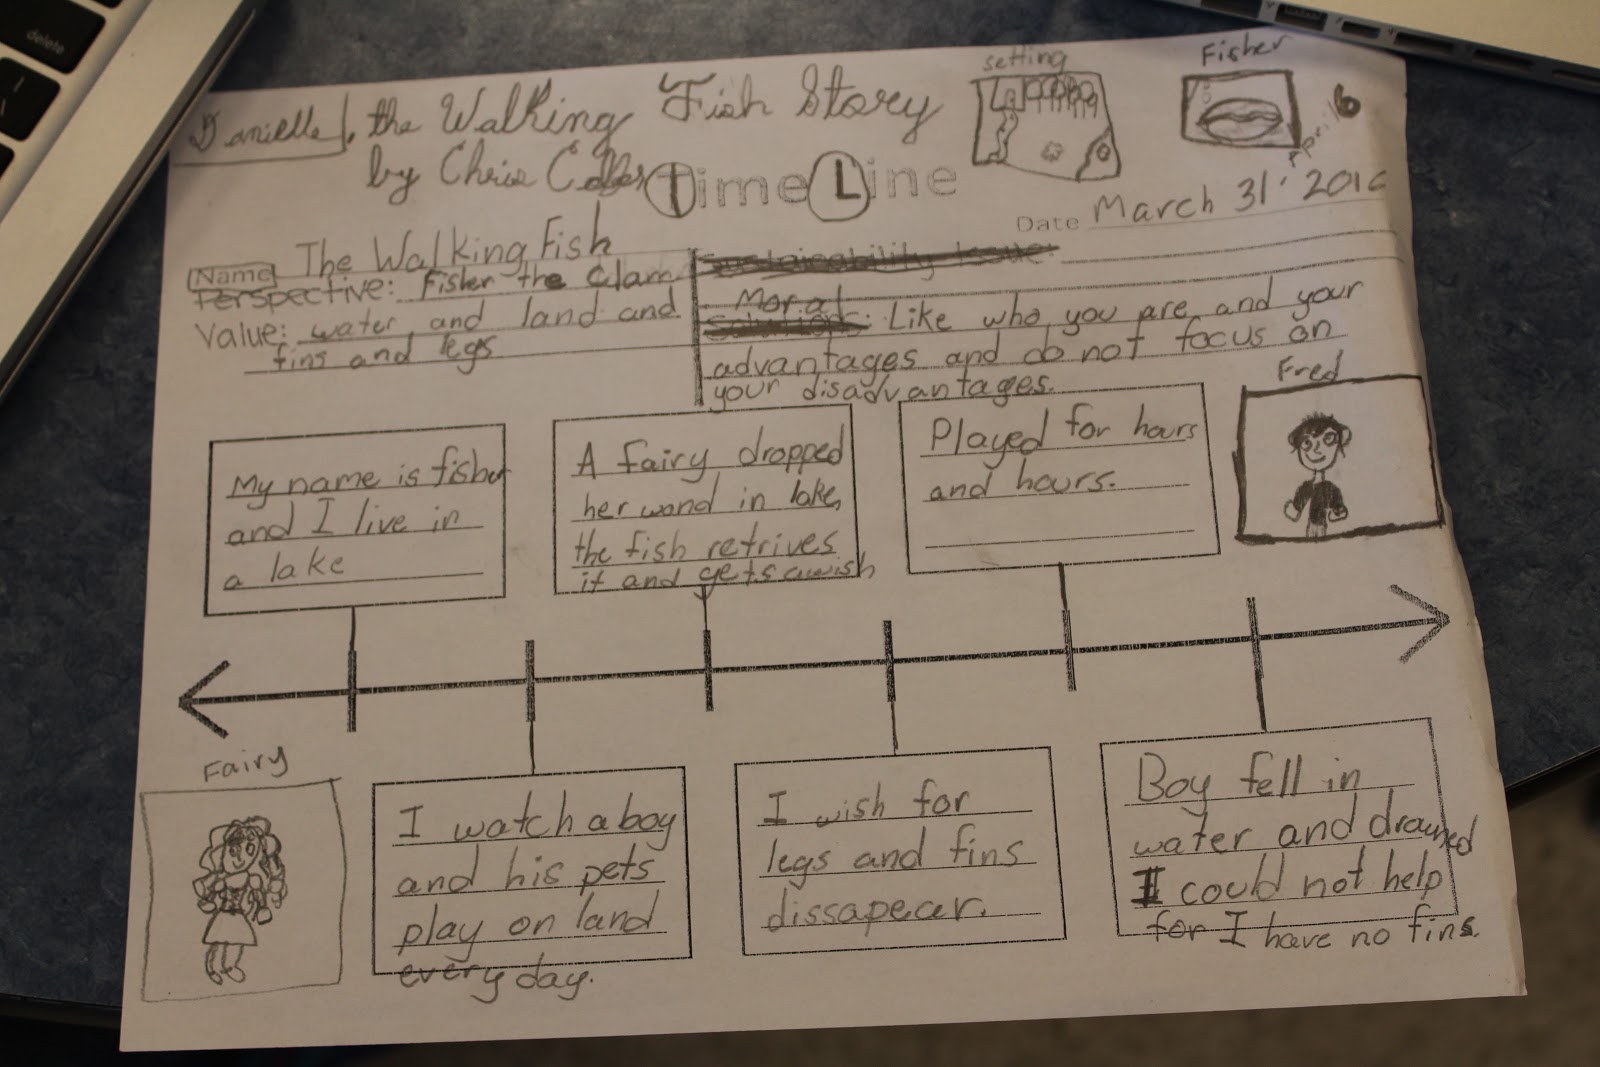 delete
Danielle, the Walking Fish Story
by Chris
Time Line
setting
Fisher
April 6
Date March 31, 2016
Name The Walking Fish
Perspective: Fisher the Clam
Value: water and land and
fins and legs
Sustainability Issue:
Moral
Solutions: Like who you are and your
advantages and do not focus on
your disadvantages.
Fred
My name is fisher
and I live in
a lake
A fairy dropped
her wand in lake,
the fish retrives
it and gets a wish
Played for hours
and hours.
Fairy
I watch a boy
and his pets
play on land
every day.
I wish for
legs and fins
dissapear.
Boy fell in
water and drowned
I could not help
for I have no fins.